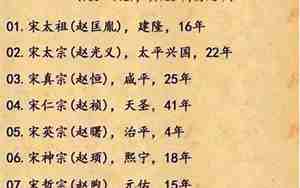 01. 宋太祖(赵匡胤), 建隆, 16年
02. 宋太宗(赵光义), 太平兴国, 22年
03. 宋真宗(赵恒), 咸平, 25年
04. 宋仁宗(赵祯), 天圣, 41年
05. 宋英宗(赵曙), 治平, 4年
06. 宋神宗(赵顼), 熙宁, 18年
07. 宋哲宗(赵煦), 元佑, 15年